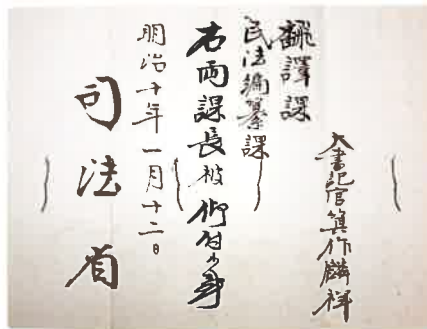 大書記官箕作麟祥
翻譯課
民法編纂課
右兩課長被仰付候事
明治十年一月十二日
司法省